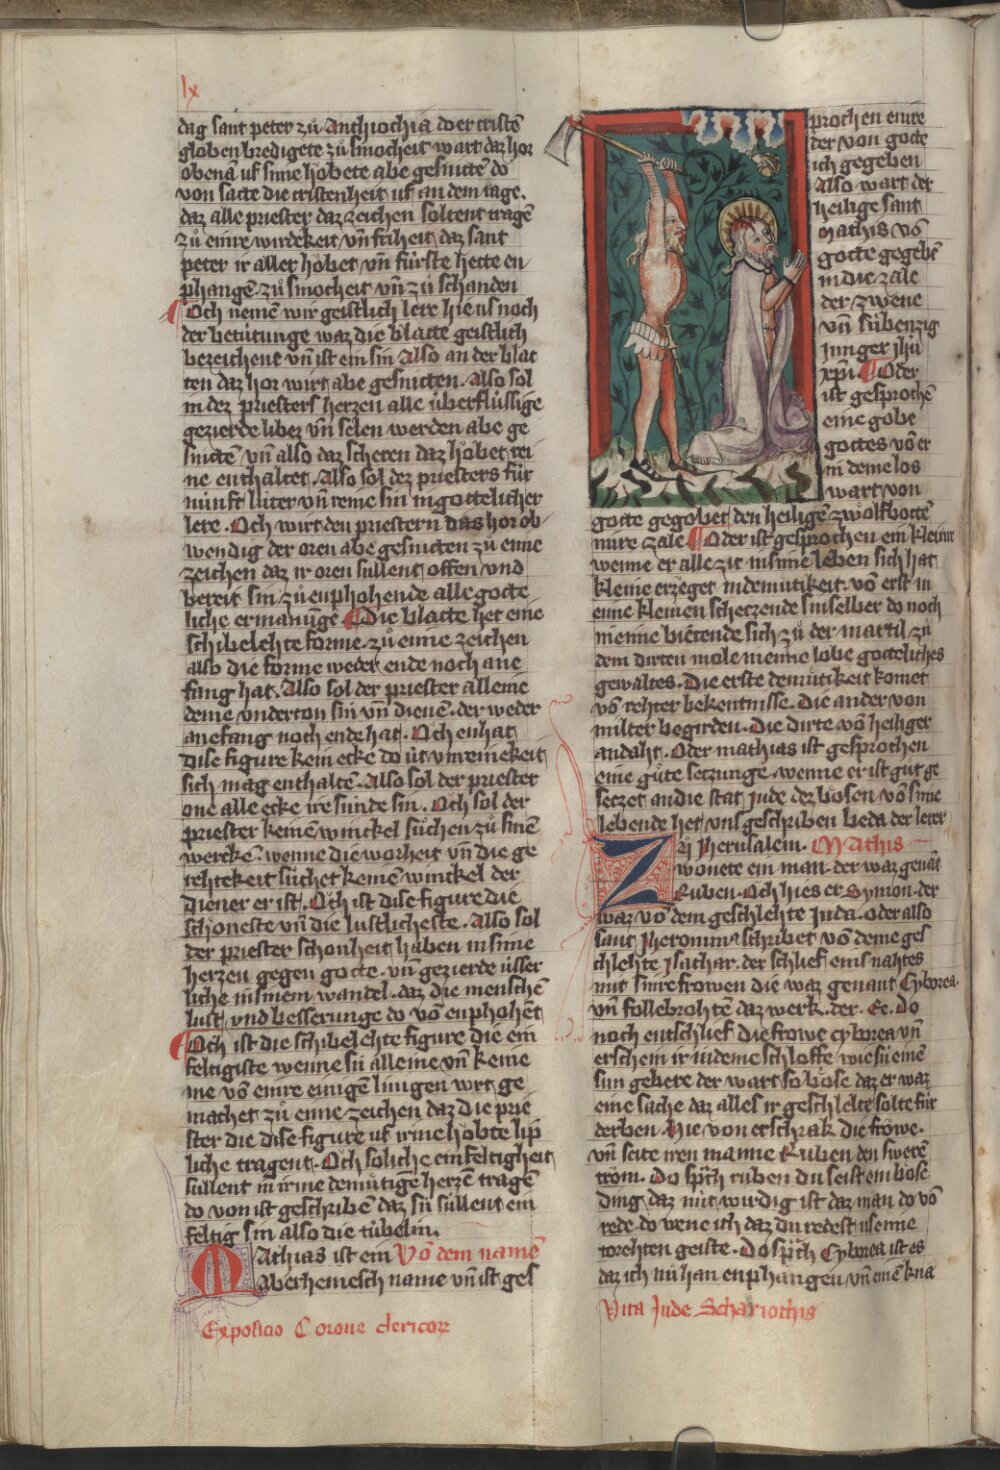 lx
dag sant peter zů Anthiochia do er cristē
globen bredigete zů smocheit wart daz hor
obenā uf sime höbete abe gesnittē do
von satte die cristenheit uf an dem tage.
daz alle priester daz zeichen soltent tragē
zů eime wirdekeit vn̄ friheit daz sant
peter ir aller höbet vn̄ fürste hette en
phangē zů smocheit vn̄ zů schanden
Och nemē wir geistlich lere hie us noch
der betütunge waz die blatte geistlich
bezeichent vn̄ ist ein sin Also an der blat
ten daz hor wirt abe gesnitten. Also sol
in dez priesters herzen alle überflüssige
gezierde libez vn̄ selen werden abe ge
snittē vn̄ also daz scheren daz höbet rei
ne enthaltet. Also sol dez priesters für
nünft luter vn̄ reine sin in gottelicher
lere. Och wirt den priestern das hor ob
wendig der oren abe gesnitten zů eime
zeichen daz ir oren süllent offen vnd
bereit sin zů enphohende alle gotte
liche ermanūge Die blatte het eine
schibelehte forme zů eime zeichen
also die forme weder ende noch ane
fang hat. Also sol der priester alleine
deme vnderton sin vn̄ dienē. der weder
anefang noch ende hat. Och enhat
dise figure kein ecke do üt vnreinekeit
sich mag enthaltē. Also sol der priester
one alle ecke ire sünde sin. Och sol der
priester keinē winckel sůchen zů sinē
werckē. wenne die worheit vn̄ die ge
rehtekeit sůchet keinē winckel der
diener er ist. Och ist dise figure die
schöneste vn̄ die lustlicheste. Also sol
der priester schonheit haben in sime
herzen gegen gotte. vn̄ gezierde üsser
liche in sinem wandel. daz die menschē
lust vnd besserunge do vō enphohēt
Och ist die schibelehte figure die ein
feltigiste wenne sü alleine vn̄ keine
me vō eime einigē linigen wirt ge
machet zů eime zeichen daz die prie
ster die dise figure uf irme höbte lip
liche tragent. Och soliche einfeltigheit
süllent in irme demütigē herzē tragē
do von ist geschribē daz sü süllent ein
feltig sin also die tübelin.
Mathias ist ein Vō dem namē
Aberhemesch name vn̄ ist ges
Expositio Corone clericorꝝ
prochen eine
der von gotte
ich gegeben
Also wart der
heilige sant
Mathis vō
gotte gegebē
in die zale
der zwene
vn̄ sübenzig
Junger jhū
xp̄i. Oder
ist gesprochē
eine gobe
gottes vō er
in deme los
wart von
gotte gegobet den heiligē zwölfbottē
mire zale Oder ist gesprochen ein kleinr
wenne er alle zit in sime leben sich hat
kleine erzeget in demütikeit. vō erst in
eime kleinen schetzende sin selber do noch
in eime bietende sich zů der martil zů
dem dirten mole in eime lobe gotteliches
gewaltes. Die erste demütikeit komet
vō rehter bekentnisse. Die ander von
milter begirden. Die dirte vō heiliger
andaht. Oder mathias ist gesprochen
eine gůte setzunge. wenne er ist gůt ge
setzet an die stat jude dez bösen vō sime
lebende het vns geschriben beda der lerer
Zů Jherusalem. Mathis
wonete ein man. der waz genāt
Ruben. Och hies er Symon. der
waz vō dem geschlehte Juda. oder also
sant Jheronimꝰ schribet vō deme ges
chlehte Jsachar. der schlief eins nahtes
mit sinre frowen die waz genant Cyborea.
vn̄ follebrohtē daz werk. der. Ee. Do
noch entschlief die frowe cyborea vn̄
erschein ir in deme schloffe wie sü einē
sun gebere der wart so böse daz er waz
eine sache daz alles ir geschlehte solte für
derben. Hie von erschrak die frowe.
vn̄ seite iren manne Ruben den swerē
trom. Do sp̄ch ruben du seist ein bose
ding daz nüt wirdig ist daz man do vō
rede. do wene ich daz du redest us eime
torehten geiste. Do sp̄ch Cyborea ist es
daz ich nů han enphangen vn̄ einē kna
Vita Jude Schariothis